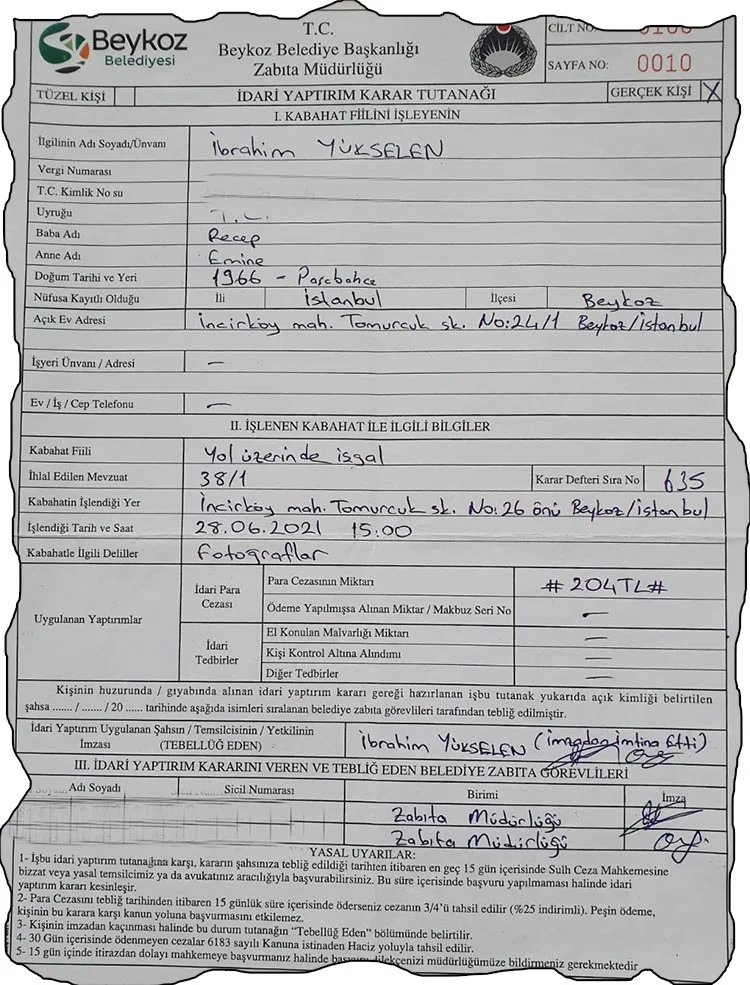 Beykoz
Belediyesi
T.C.
Beykoz Belediye Başkanlığı
Zabıta Müdürlüğü
CİLT NO:
SAYFA NO: 0010
TÜZEL KİŞİ
İDARİ YAPTIRIM KARAR TUTANAĞI
GERÇEK KİŞİ X
I. KABAHAT FİİLİNİ İŞLEYENİN
İlgilinin Adı Soyadı/Ünvanı İbrahim YÜKSELEN
Vergi Numarası
T.C. Kimlik No su
Uyruğu T.C.
Baba Adı Recep
Anne Adı Emine
Doğum Tarihi ve Yeri 1966 - Paşabahçe
Nüfusa Kayıtlı Olduğu İli İstanbul İlçesi Beykoz
Açık Ev Adresi İncirköy mah. Tomurcuk sk. No:24/1 Beykoz/İstanbul
İşyeri Ünvanı / Adresi —
Ev / İş / Cep Telefonu —
II. İŞLENEN KABAHAT İLE İLGİLİ BİLGİLER
Kabahat Fiili Yol üzerinde işgal
İhlal Edilen Mevzuat 38/1 Karar Defteri Sıra No 635
Kabahatin İşlendiği Yer İncirköy mah. Tomurcuk sk. No:26 önü Beykoz/İstanbul
İşlendiği Tarih ve Saat 28.06.2021 15:00
Kabahatle İlgili Deliller Fotoğraflar
Uygulanan Yaptırımlar
İdari Para Cezası
Para Cezasının Miktarı # 204TL#
Ödeme Yapılmışsa Alınan Miktar / Makbuz Seri No —
İdari Tedbirler
El Konulan Malvarlığı Miktarı —
Kişi Kontrol Altına Alındımı —
Diğer Tedbirler —
Kişinin huzurunda / gıyabında alınan idari yaptırım kararı gereği hazırlanan işbu tutanak yukarıda açık kimliği belirtilen
şahsa ....... / ....... / 20 ...... tarihinde aşağıda isimleri sıralanan belediye zabıta görevlileri tarafından tebliğ edilmiştir.
İdari Yaptırım Uygulanan Şahsın / Temsilcisinin / Yetkilinin
İmzası (TEBELLÜĞ EDEN) İbrahim YÜKSELEN (İmzadan imtina Etti)
III. İDARİ YAPTIRIM KARARINI VEREN VE TEBLİĞ EDEN BELEDİYE ZABITA GÖREVLİLERİ
Adı Soyadı Sicil Numarası Birimi İmza
Zabıta Müdürlüğü
Zabıta Müdürlüğü
YASAL UYARILAR:
1- İşbu idari yaptırım tutanağına karşı, kararın şahsınıza tebliğ edildiği tarihten itibaren en geç 15 gün içerisinde Sulh Ceza Mahkemesine
bizzat veya yasal temsilcimiz ya da avukatınız aracılığıyla başvurabilirsiniz. Bu süre içerisinde başvuru yapılmaması halinde idari
yaptırım kararı kesinleşir.
2- Para Cezasını tebliğ tarihinden itibaren 15 günlük süre içerisinde öderseniz cezanın 3/4'ü tahsil edilir (%25 indirimli). Peşin ödeme,
kişinin bu karara karşı kanun yoluna başvurmasını etkilemez.
3- Kişinin imzadan kaçınması halinde bu durum tutanağın "Tebellüğ Eden" bölümünde belirtilir.
4- 30 Gün içerisinde ödenmeyen cezalar 6183 sayılı Kanuna istinaden Haciz yoluyla tahsil edilir.
5- 15 gün içinde itirazdan dolayı mahkemeye başvurmanız halinde başvuru dilekçenizi müdürlüğümüze bildirmeniz gerekmektedir